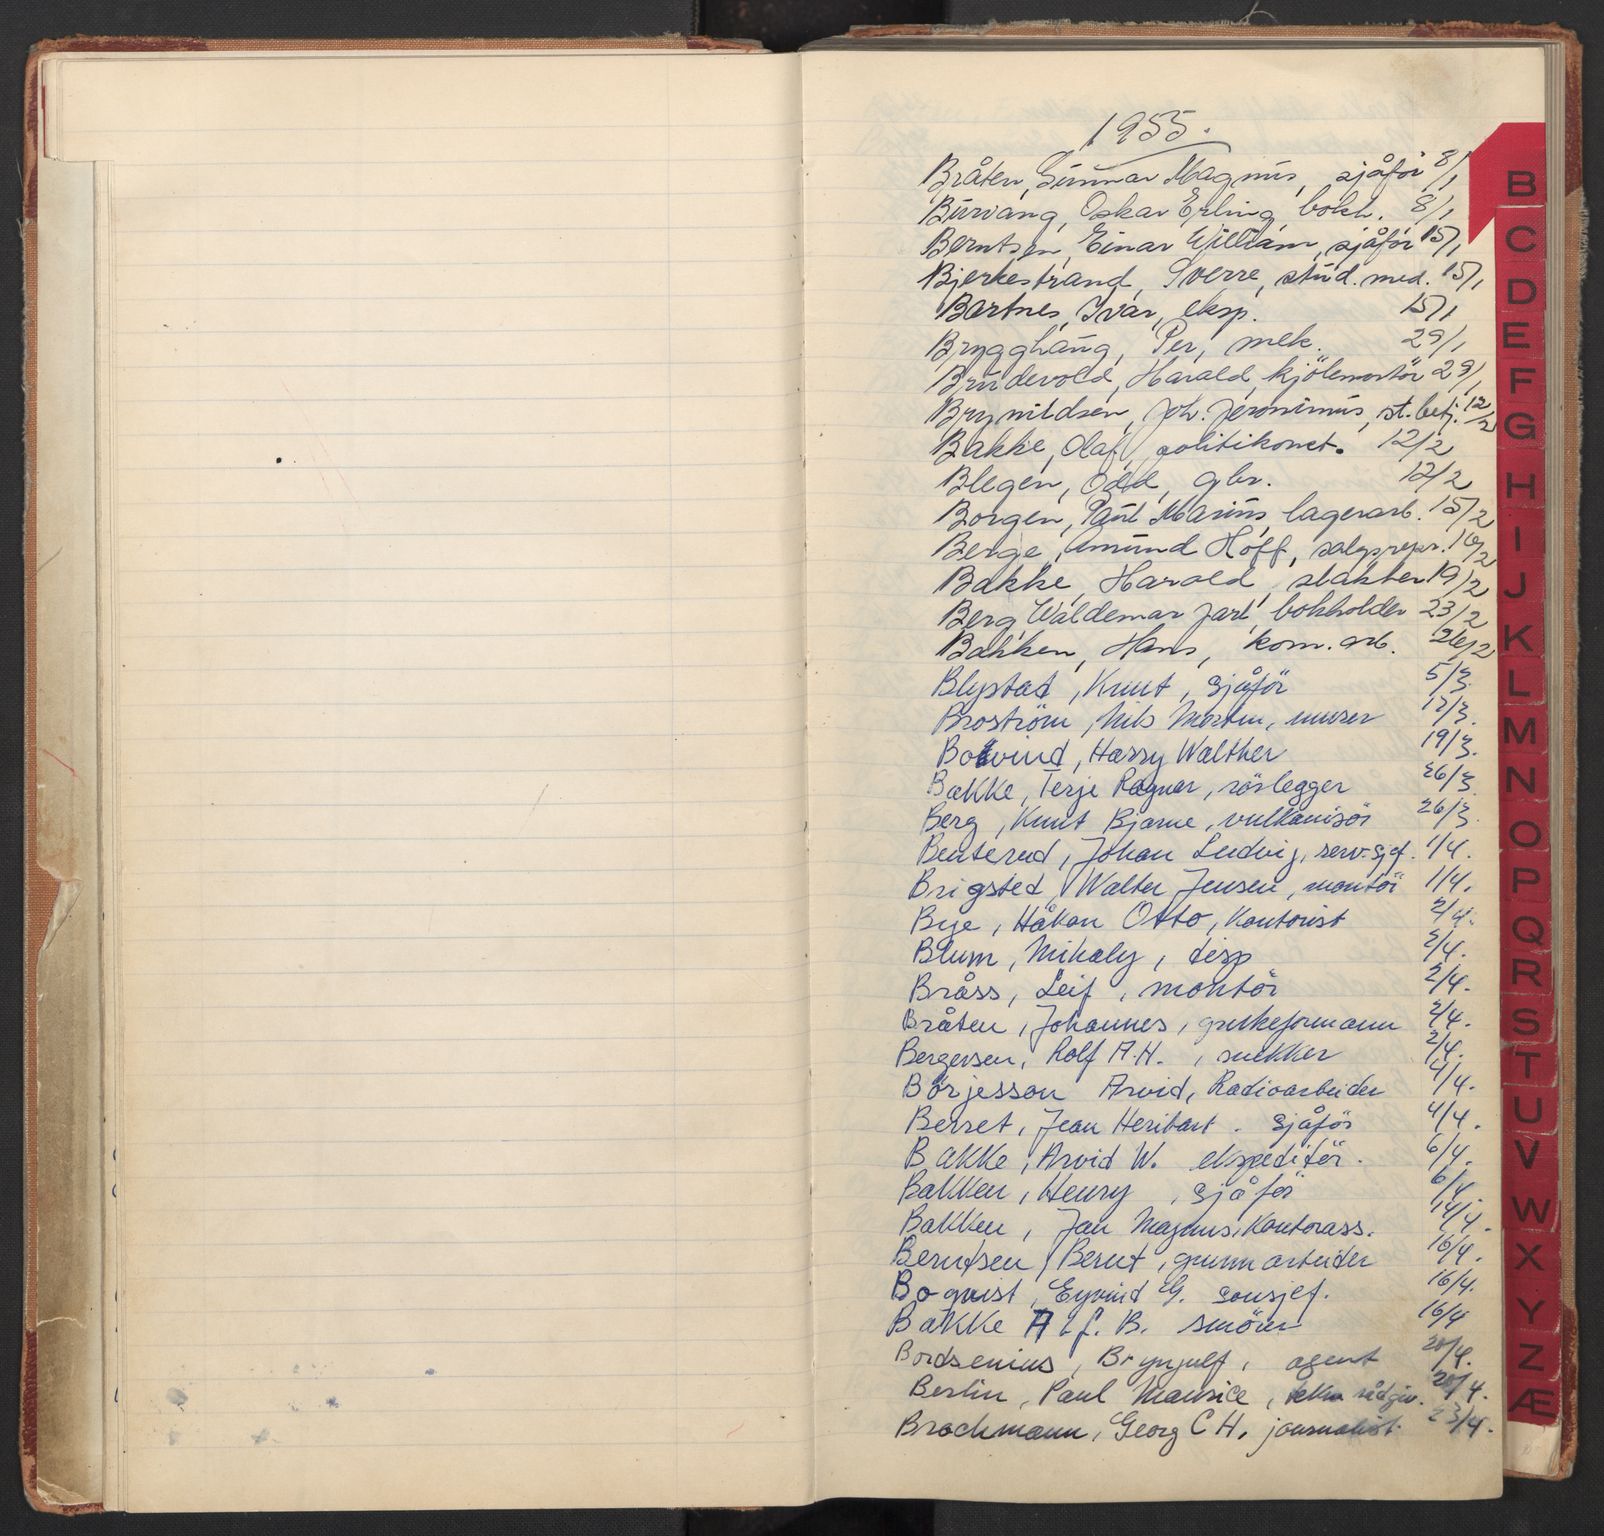 1955.
Bråten, Gunnar Magnus, sjåför 8/1
Burvang, Oskar Erling bokh. 8/1
Berntsen, Einar William, sjåför 15/1
Bjerkestrand, Sverre, stud. med. 15/1
Bartnes, Ivar, eksp. 15/1
Brygghaug, Per, mek. 29/1
Brudevold, Harald, kjölemontör 29/1
Brynildsen, Joh. Jeronimus, st. betj. 12/2
Bakke, Olaf, politikonst. 12/2
Blegen, Odd, gbr. 12/2
Borgen, Paul Marius, lagerarb. 15/2
Berge, Amund Hoff, salgsrepr. 16/2
Bakke, Harald, slakter 19/2
Berg, Waldemar Jarl, bokholder 23/2
Bakken, Hans, kom. arb. 26/2
Blystad, Knut, sjåför 5/3.
Broström, Nils Morten, murer 12/3.
Bovind, Harry Walther 19/3.
Bakke, Terje Ragnar, rörlegger 26/3
Berg, Knut Bjarne, vulkanisör 26/3.
Benterud, Johan Ludvig, serv. sjef. 1/4.
Brigsted, Walter Jensen, montör 1/4.
Bye, Håkon Otto, Kontorist 2/4.
Blum, Mihaly, disp 2/4.
Bråss, Leif, montör 2/4.
Bråten, Johannes, gruveformann 2/4.
Bergersen, Rolf A.H., snekker 2/4.
Börjesson Arvid, Radioarbeider 4/4.
Berset, Jean Heribart. sjåför 4/4.
Bakke, Arvid W. ekspeditör. 6/4.
Bakken, Henry, sjåför 6/4.
Bakken, Jan Magnus, Kontorass. 14/4.
Berntsen, Bernt, grunnarbeider 16/4.
Boqvist, Eyvind G. sousjef. 16/4.
Bakke Alf. B. smörer 16/4
Bordsenius, Brynjulf, agent 20/4.
Berlin, Paul Maurice, tekn rådgiv. 20/4.
Brochmann, Georg C H, journalist 23/4.
B
C
D
E
F
G
H
I
J
K
L
M
N
O
P
Q
R
S
T
U
V
W
X
Y
Z
Æ